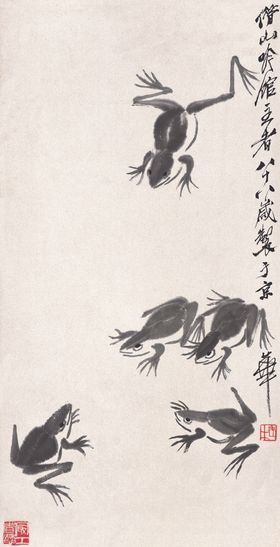 借山吟館主者八十八歲製于京
華